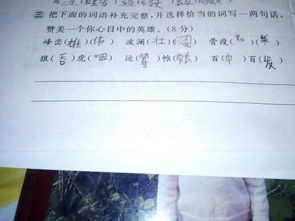 三 把下面的词语补充完整,并选择恰当的词写一两句话,
赞美一个你心目中的英雄。(8分)
峰峦(雄)(伟) 波澜(壮)(阔) 骨瘦(如)(柴)
狼(吞)虎(咽) 运(筹)帷(帐) 百(中)百(发)